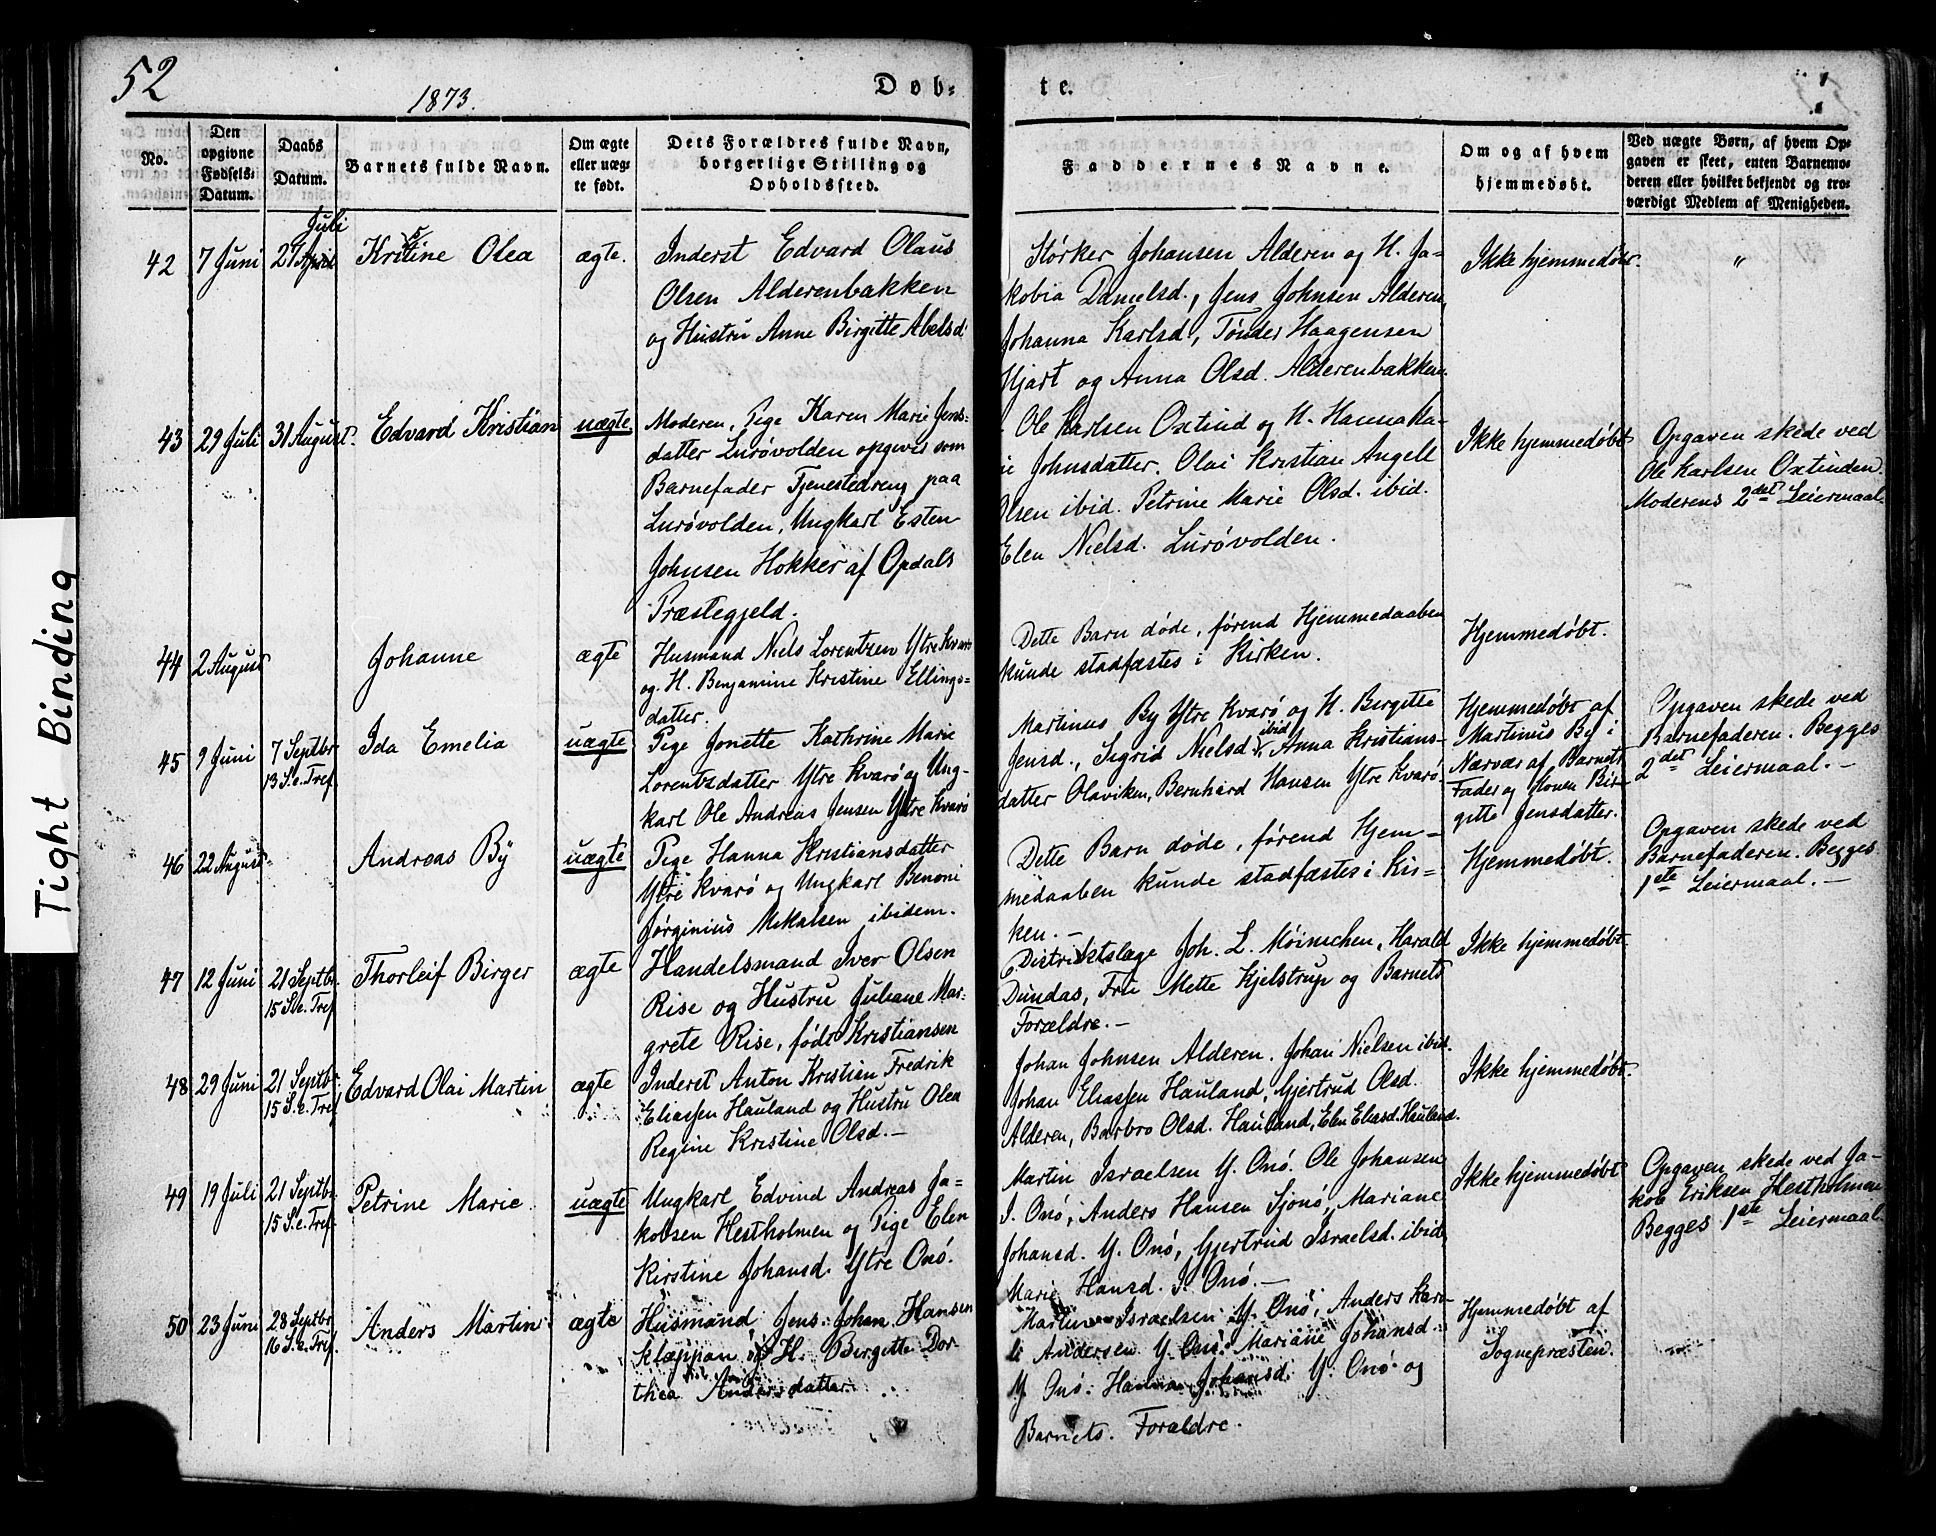 52
1873.
Døb-
te.
No.
Den opgivne Fødsels-Datum.
Daabs Datum.
Barnets fulde Navn.
Om ægte eller uægte født.
Dets Forældres fulde Navn, borgerlige Stilling og Opholdssted.
Faddernes Navne.
Om og af hvem hjemmedøbt.
Ved uægte Børn, af hvem Opgaven er skeet, enten Barnemoderen eller hvilket bekjendt og troværdigt Medlem af Menigheden.
42
7 Juni
Juli
27 April
Kristine Olea
ægte.
Inderst Edvard Olaus
Olsen Alderenbakken
og Hustru Anne Birgitte Abelsd.
Størker Johansen Alderen og H. Ja-
kobia Danielsd., Jens Johnsen Alderen,
Johanna Karlsd, Tønder Haagensen
Hjart og Anna Olsd. Alderenbakken.
Ikke hjemmedøbt.
"
43
29 Juli
31 August.
Edvard Kristian
uægte
Moderen, Pige Karen Marie Jens-
datter Lurøvolden opgives som
Barnefader Tjenestedreng paa
Lurøvolden, Ungkarl Esten
Johnsen Hokker af Opdals
Præstegjeld.
Ole Karlsen Oxtind og H. Hanna Ka-
rie Johnsdatter. Olai Kristian Angell
Olsen ibid. Petrine Marie Olsd. ibid.
Elen Nielsd. Lurøvolden.
Ikke hjemmedøbt
Opgaven skede ved
Ole Karlsen Oxtinden.
Moderens 2det Leiermaal.
44
2 August
Johanne
ægte
Husmand Niels Lorentzen Ytre Kvarø
og H. Benjamine Kristine Ellings-
datter.
Dette Barn døde, førend Hjemmedaaben
kunde stadfæstes i Kirken.
Hjemmedøbt.
45
9 Juni
7 Septbr
13 S. e. Tref.
Ida Emelia
uægte
Pige Jonette Kathrine Marie
Lorentsdatter Ytre Kvarø og Ung-
karl Ole Andreas Jensen Ytre Kvarø
Martinus By Ytre Kvarø og H. Birgitte
Jensd., Sigrid Nielsd. ibid, Anna Kristians-
datter Olaviken, Bernhard Hansen Ytre Kvarø
Hjemmedøbt af
Martinus By i
Nærvær af Barnets
Fader og Konen Bir-
gitte Jensdatter.
Opgaven skede ved
Barnefaderen. Begges
2det Leiermaal. -
46
22 August
Andreas By
uægte
Pige Hanna Kristiansdatter
Ytre Kvarø og Ungkarl Benoni
Jørginius Mikalsen ibidem.
Dette Barn døde, førend Hjem-
medaaben kunde stadfæstes i Kir-
ken. -
Hjemmedøbt.
Opgaven skede ved
Barnefaderen. Begges
1ste Leiermaal. -
47
12 Juni
21 Septbr.
15 S. e. Tref
Thorleif Birger
ægte
Handelsmand Iver Olsen
Rise og Hustru Juliane Mar-
grete Rise, født Kristiansen
Distriktslæge Joh. L. Møinichen, Harald
Dundas, Fru Mette Kjelstrup og Barnets
Forældre. -
Ikke hjemmedøbt.
48
29 Juni
21 Septbr.
15 S. e. Tref
Edvard Olai Martin
ægte
Inderst Anton Kristian Fredrik
Eliassen Hauland og Hustru Olea
Regine Kristine Olsd. -
Johan Johnsen Alderen. Johan Nielsen ibid.
Johan Eliassen Hauland, Gjertrud Olsd.
Alderen, Barbro Olsd. Hauland, Elen Eliasd. Hauland.
Ikke hjemmedøbt.
49
19 Juli
21 Septbr.
15 S. e. Tref.
Petrine Marie
uægte
Ungkarl Edvind Andreas Ja-
kobsen Hestholmen og Pige Elen
Kirstine Johansd. Ytre Onø.
Martin Israelsen Y. Onø. Ole Johansen
I. Onø, Anders Hansen Sjonø, Mariane
Johansd. Y. Onø, Gjertrud Israelsd. ibid,
Marie Hansd. I. Onø. -
Ikke hjemmedøbt
Opgaven skede ved Ja-
kob Eriksen Hestholmen
Begges 1ste Leiermaal.
50
23 Juni
28 Septbr
16 S. e. Tref.
Anders Martin
ægte
Husmand Jens Johan Hansen
Klæppan og H. Birgitte Dor-
thea Andersdatter.
Martin Israelsen Y. Onø, Anders
Andersen Y. Onø. Mariane Johansd.
Y. Onø. Hanna Johansd. Y. Onø og
Barnets Forældre.
Hjemmedøbt af
Sognepræsten.
Tight Binding